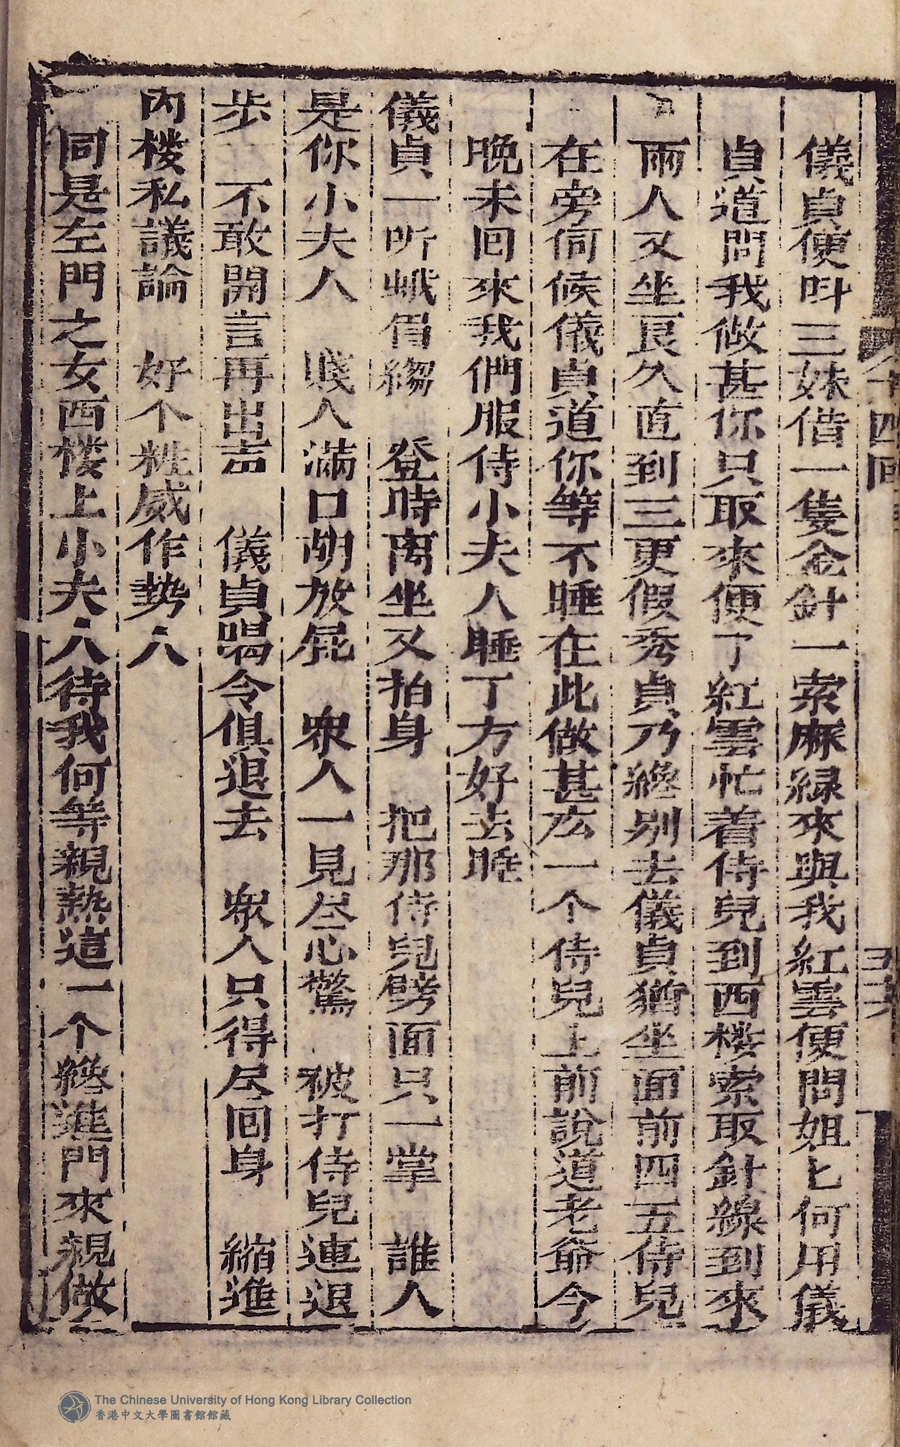 儀貞便呌三妹借一隻金針一索麻緑來與我紅雲便問姐匕何用儀
貞道問我做甚你只取來便了紅雲忙着侍兒到西楼索取針線到來
兩人又坐良久直到三更假秀貞乃纔别去儀貞猶坐面前四五侍兒
在旁伺候儀貞道你等不睡在此做甚庅一个侍兒上前說道老爺今
晚未回來我們服侍小夫人睡了方好去睡
儀貞一听蛾眉縐 登時离坐又拍身 把那侍兒劈面只一掌 誰人
是你小夫人 賤人滿口胡放屁 衆人一見尽心驚 被打侍兒連退
步 不敢開言再出言 儀貞喝令俱退去 衆人只得尽回身 縮進
內楼私議論 好个粧威作勢人
同是左門之女西楼上小夫人待我何等親熱這一个纔進門來親做
十四回
The Chinese University of Hong Kong Library Collection
香港中文大學圖書館館藏